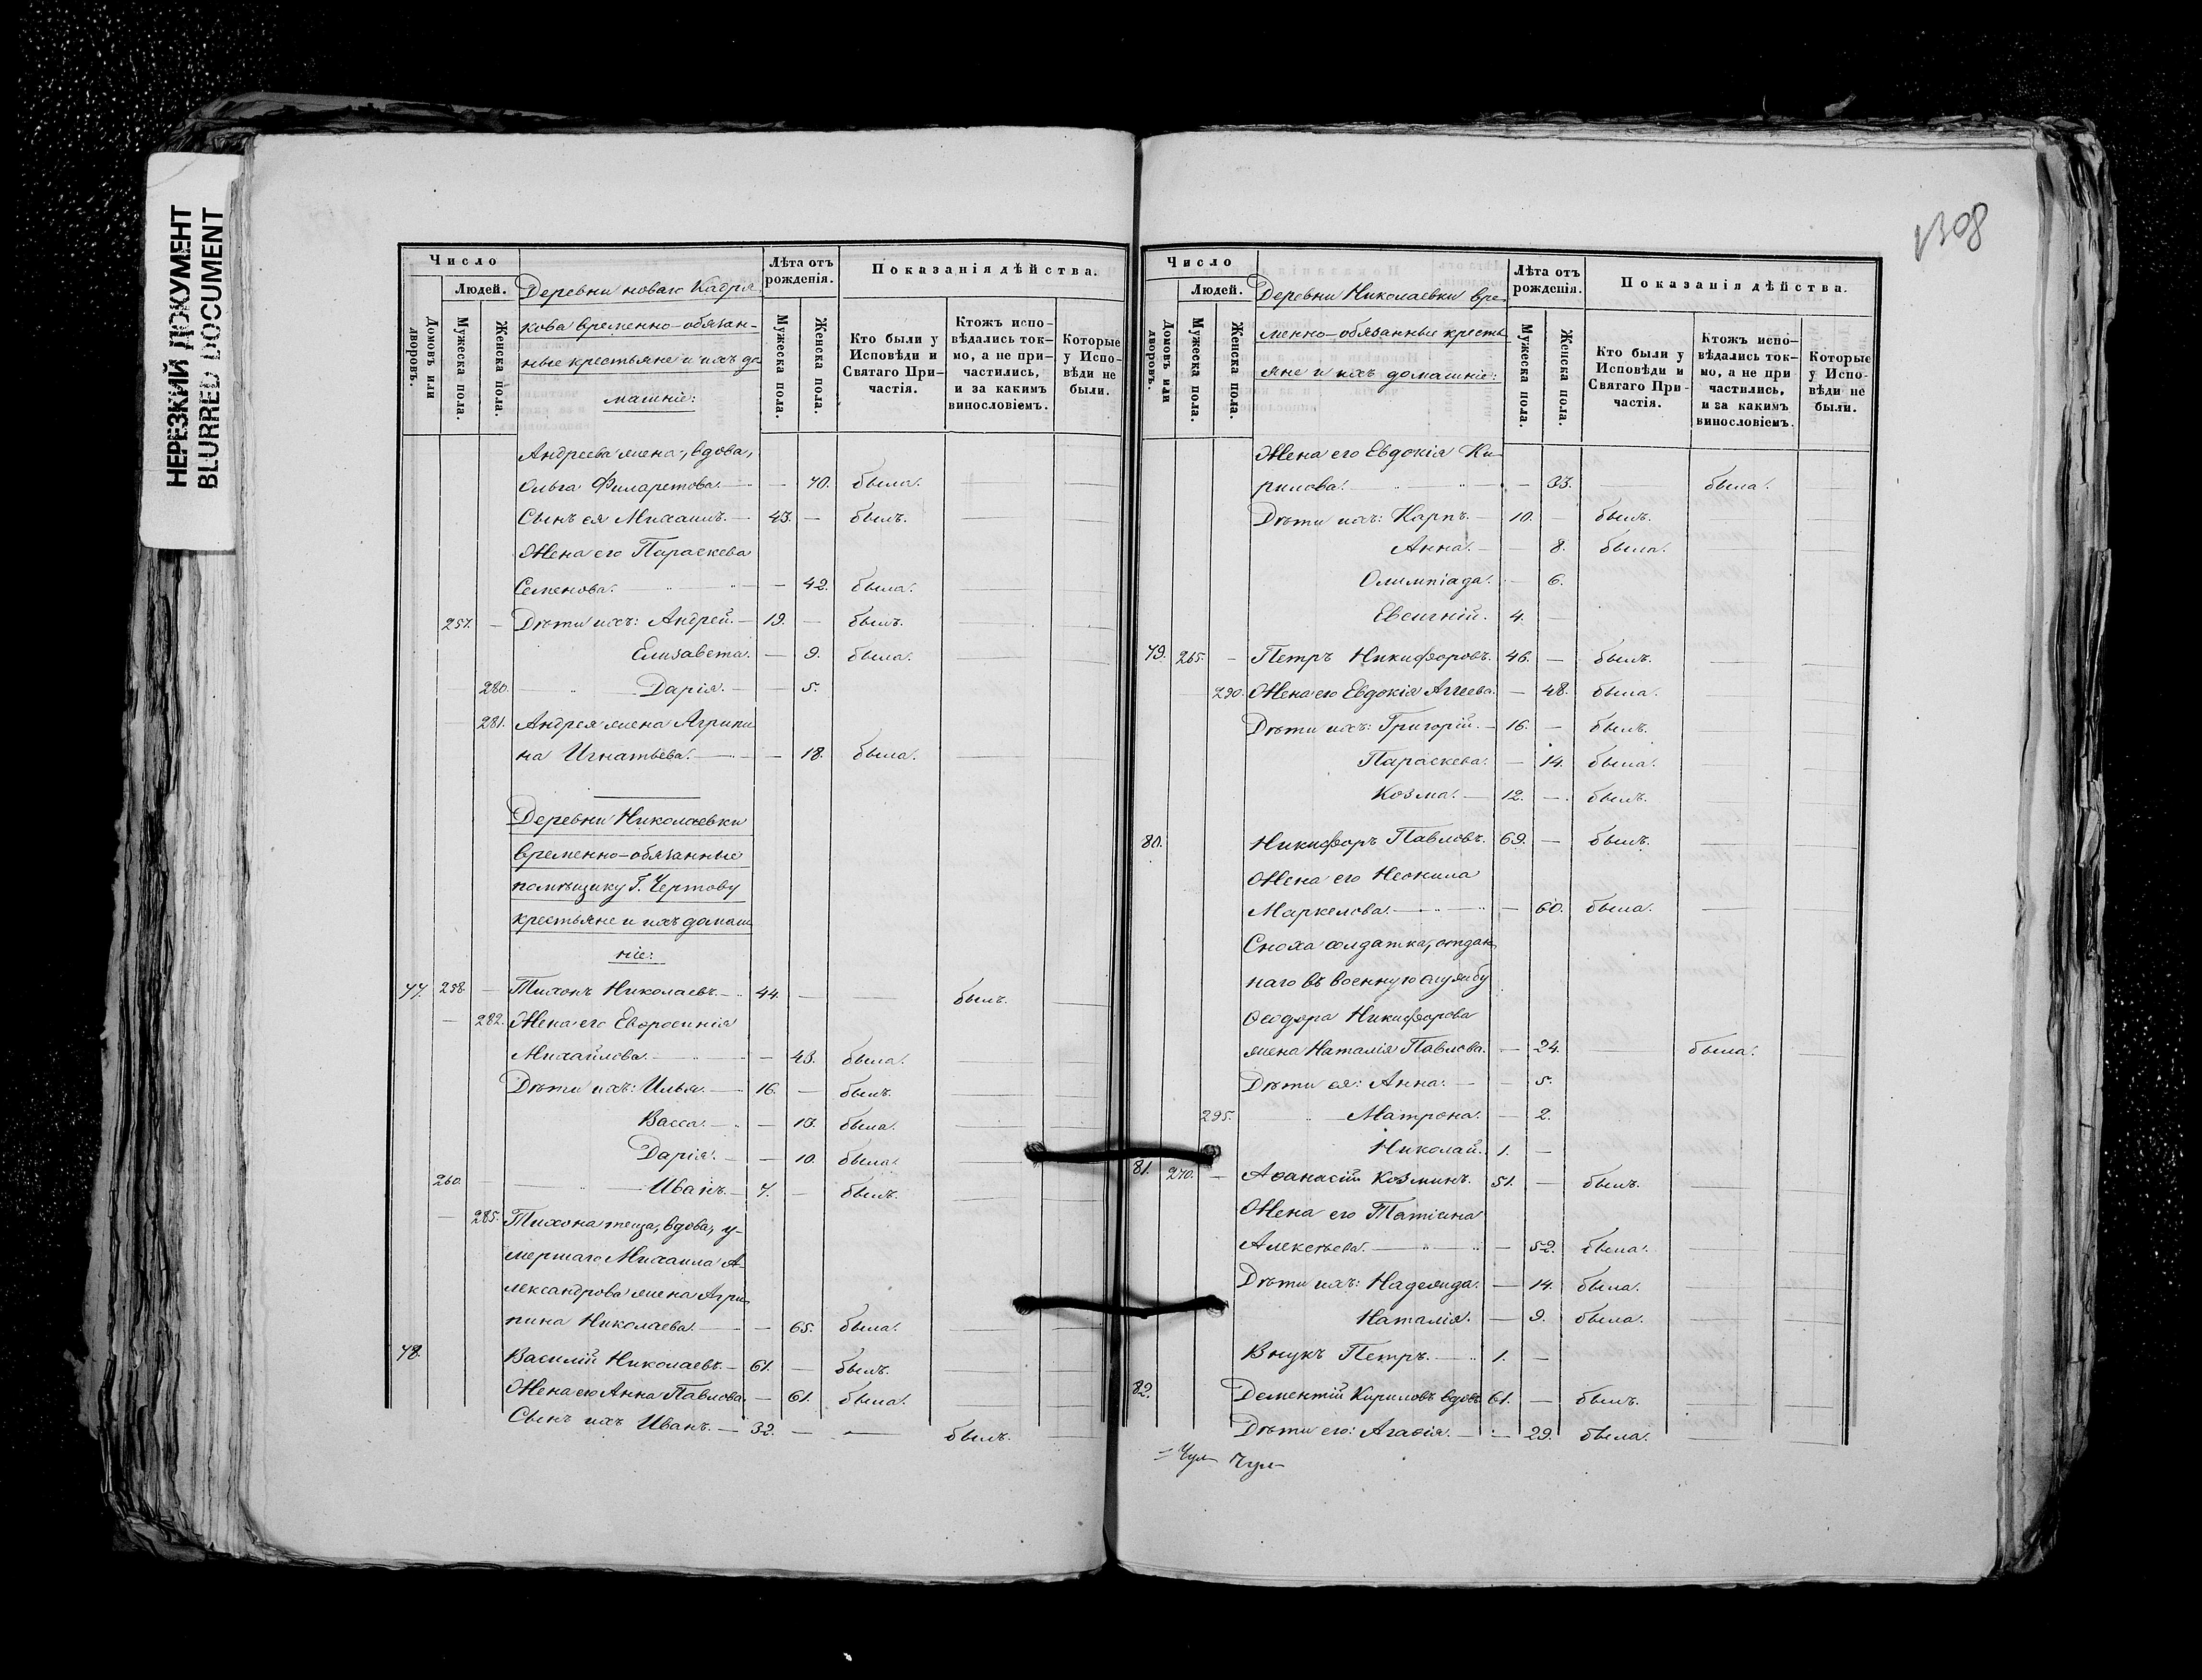 НЕРЕЗКИЙ ДОКУМЕНТ
BLURRED DOCUMENT
Число
Людей.
Домовъ или дворовъ.
Мужеска пола.
Женска пола.
Деревни новаго Кадри-
кова временно-обязан-
ные крестьяне и ихъ до
машніе:
Лѣта отъ рожденія.
Мужеска пола.
Женска пола.
Показанія дѣйства.
Кто были у Исповѣди и Святаго При-частія.
Ктожъ испо-вѣдались ток-мо, а не при-частились, и за какимъ винословіемъ.
Которые у Испо-вѣди не были.
Андреева жена, вдова,
Ольга Филаретова. — 70. была.
Сынъ ея Михаилъ. — 43. — былъ.
Жена его Параскева
Семенова. — 42. была.
257. — Дѣти ихъ: Андрей. — 19. — былъ.
Елизавета. — 9. была.
280. Дарія. — 5.
— 281. Андрея жена Агрипи
на Игнатьева. — 18. была.
Деревни Николаевки
временно-обязанные
помѣщику Г. Чертову
крестьяне и ихъ домаш
ніе:
77. 258. — Тихонъ Николаевъ. — 44. — — былъ.
— 282. Жена его Евфросинія
Михайлова. — 43. была.
Дѣти ихъ: Илья. — 16. — былъ.
Васса. — 13. была.
Дарія. — 10. была.
260. Иванъ. — 7. — былъ.
— 285. Тихона теща, вдова, у-
мершаго Михаила А-
лександрова жена Агри
пина Николаева. — 65. была.
78. Василій Николаевъ. — 61. — былъ.
Жена его Анна Павлова. — 61. была.
Сынъ ихъ Иванъ. — 32. — — былъ.
1308
Число
Людей.
Домовъ или дворовъ.
Мужеска пола.
Женска пола.
Деревни Николаевки вре-
менно-обязанные кресть
яне и ихъ домашніе:
Лѣта отъ рожденія.
Мужеска пола.
Женска пола.
Показанія дѣйства.
Кто были у Исповѣди и Святаго При-частія.
Ктожъ испо-вѣдались ток-мо, а не при частились, и за какимъ винословіемъ.
Которые у Испо-вѣди не были.
Жена его Евдокія Ки-
рилова. — 33. — была.
Дѣти ихъ: Карпъ. — 10. — былъ.
Анна. — 8. была.
Олимпіада. — 6.
Евсигній. 4. —
79. 265. — Петръ Никифоровъ. 46. — былъ.
290. Жена его Евдокія Аггеева. — 48. была.
Дѣти ихъ: Григорій. — 16. — былъ.
Параскева. — 14. была.
Козма. — 12. — былъ.
80. Никифоръ Павловъ. 69. — былъ.
Жена его Неонила
Маркелова. — 60. была.
Сноха солдатка, отдан
наго въ военную службу
Ѳеодора Никифорова
жена Наталія Павлова. — 24. — была.
Дѣти ея: Анна. — 5.
295. Матрона. — 2.
Николай. 1. —
81. 270. — Аѳанасій Козминъ. 51. — былъ.
Жена его Татіана
Алексѣева. — 52. была.
Дѣти ихъ: Надежда. — 14. была.
Наталія. — 9. была.
Внукъ Петръ. — 1. —
82. Дементій Кириловъ вдовъ 61. — былъ.
Дѣти его: Агаѳія. — 29. была.